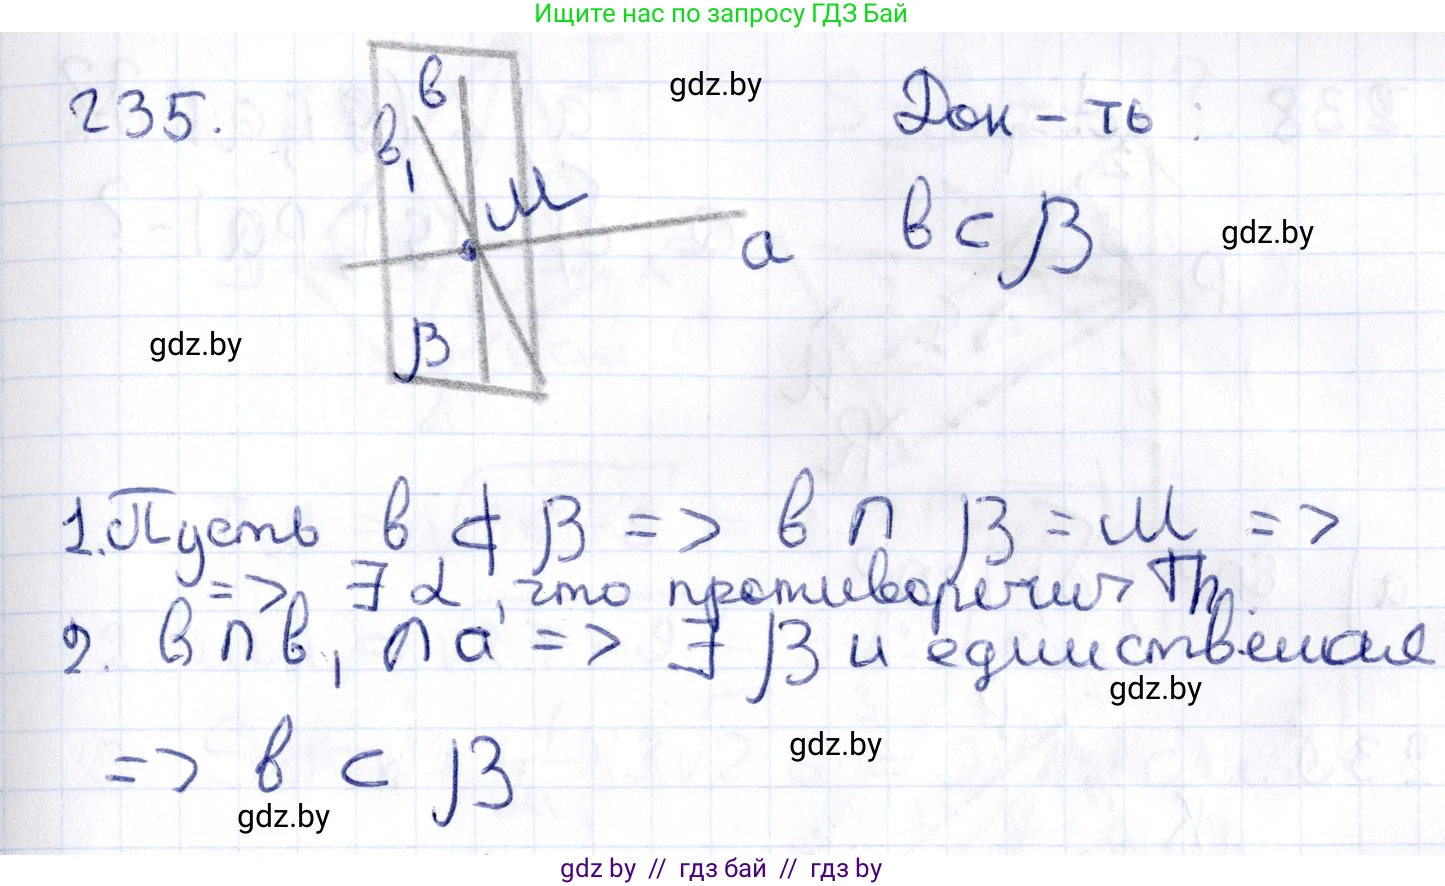 Ищите нас по запросу ГДЗ Бай
235.
в
в₁
М
а
β
gdz.by
Док-ть:
в ⊂ β
gdz.by
gdz.by
1. Пусть в ⊄ β => в ∩ β = М =>
=> ∃ α, что противоречит Th.
2. в ∩ в₁ ∩ а => ∃ β и единственная
gdz.by
gdz.by
=> в ⊂ β
gdz.by
gdz.by // гдз бай // гдз.by